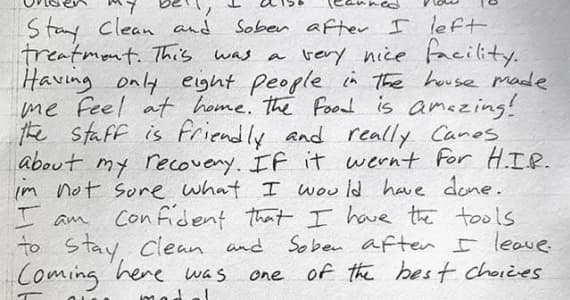 under my belt, I also learned how to
Stay Clean and Sober after I left
treatment. This was a very nice facility.
Having only eight people in the house made
me feel at home. the food is amazing!
the staff is friendly and really Cares
about my recovery. If it wernt for H.I.R.
im not sure what I would have done.
I am confident that I have the tools
to stay clean and Sober after I leave.
Coming here was one of the best choices
I ever made!